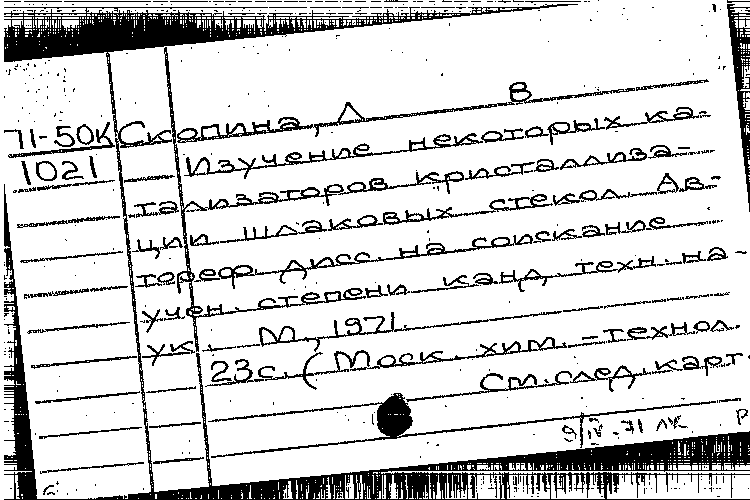 71-50К Скопина, Л В
1021 Изучение некоторых ка-
тализаторов кристаллиза-
ции шлаковых стекол. Ав-
тореф. дисс. на соискание
учен. степени канд. техн. на-
ук. М., 1971.
23с. (Моск. хим.-технол.
См. след. карт.
9/IV-71 ЛК Р